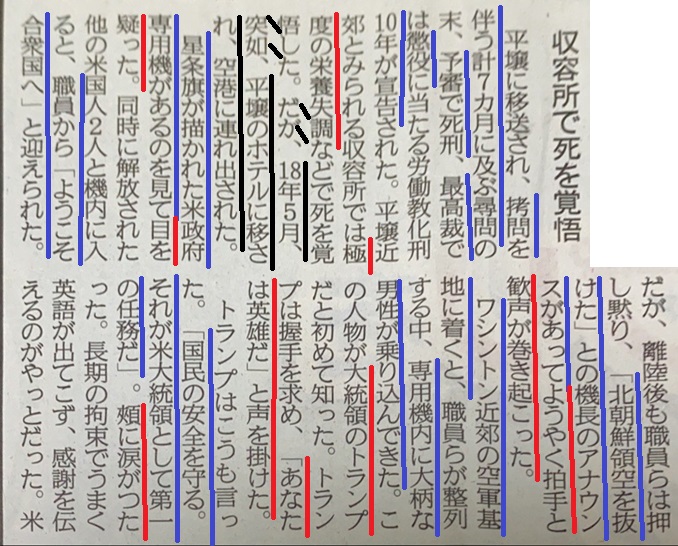 収容所で死を覚悟
平壌に移送され、拷問を
伴う計7カ月に及ぶ尋問の
末、予審で死刑、最高裁で
は懲役に当たる労働教化刑
10年が宣告された。平壌近
郊とみられる収容所では極
度の栄養失調などで死を覚
悟した。だが、18年5月、
突如、平壌のホテルに移さ
れ、空港に連れ出された。
星条旗が描かれた米政府
専用機があるのを見て目を
疑った。同時に解放された
他の米国人2人と機内に入
ると、職員から「ようこそ
合衆国へ」と迎えられた。
だが、離陸後も職員らは押
し黙り、「北朝鮮領空を抜
けた」との機長のアナウン
スがあってようやく拍手と
歓声が巻き起こった。
ワシントン近郊の空軍基
地に着くと、職員らが整列
する中、専用機内に大柄な
男性が乗り込んできた。こ
の人物が大統領のトランプ
だと初めて知った。トラン
プは握手を求め、「あなた
は英雄だ」と声を掛けた。
トランプはこうも言っ
た。「国民の安全を守る。
それが米大統領として第一
の任務だ」。頬に涙がつた
った。長期の拘束でうまく
英語が出てこず、感謝を伝
えるのがやっとだった。米